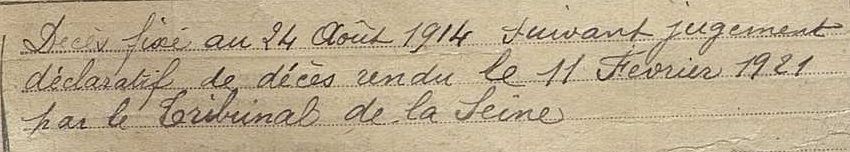 Décès fixé au 24 Août 1914 suivant jugement
déclaratif de décès rendu le 11 Fevrier 1921
par le Tribunal de la Seine